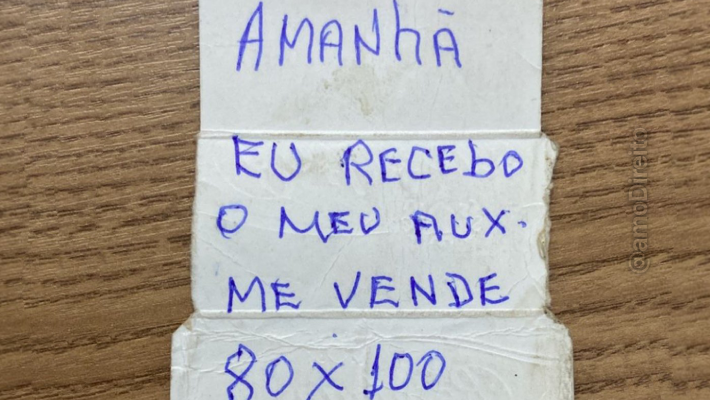 AMANhÃ
EU RECEbO
O MEU AUX.
ME VENDE
80 x 100
@amoDireito